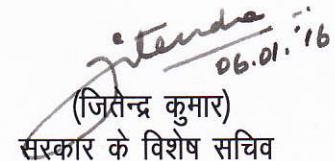 Jitendra
06.01.'16
(जितेन्द्र कुमार)
सरकार के विशेष सचिव